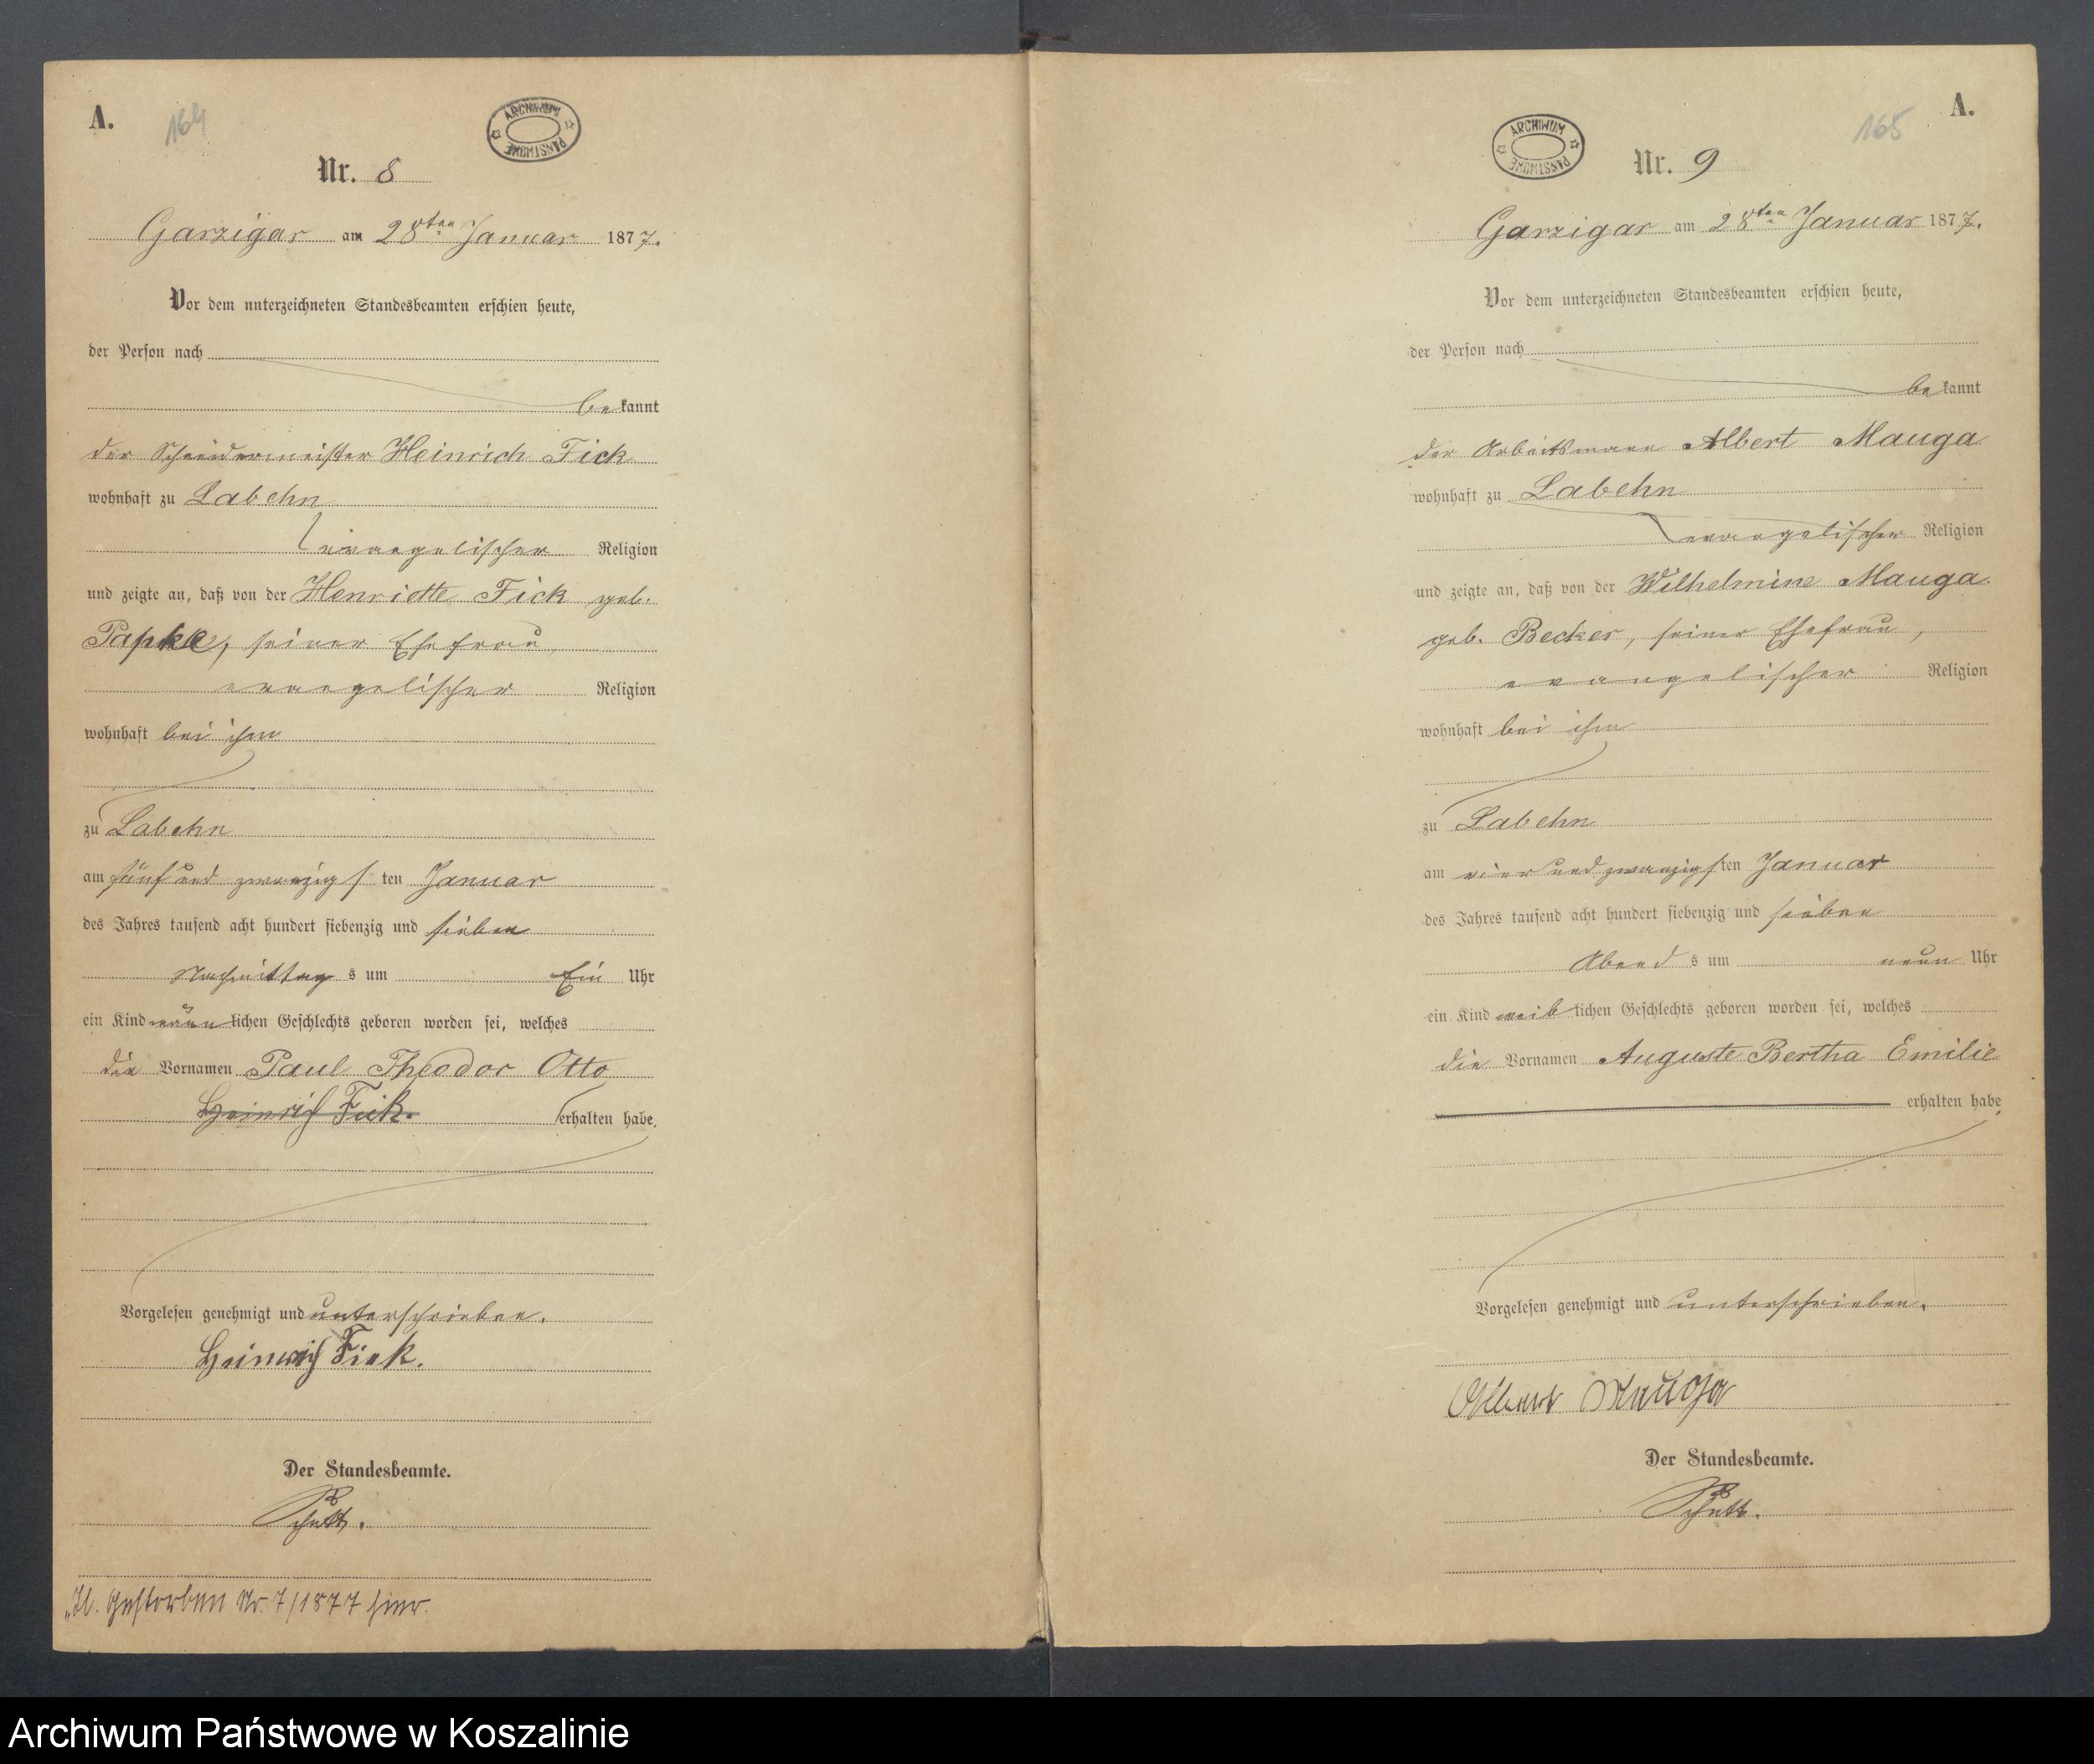 A.
164
ARCHIWUM PAŃSTWOWE
Nr. 8
Garzigar am 28ten Januar 1877.
Vor dem unterzeichneten Standesbeamten erschien heute,
der Person nach
bekannt
der Schneidermeister Heinrich Fick
wohnhaft zu Labehn
evangelischer Religion
und zeigte an, daß von der Henriette Fick geb.
Papke, seiner Ehefrau,
evangelischer Religion
wohnhaft bei ihm
zu Labehn
am fünf und zwanzigsten Januar
des Jahres tausend acht hundert siebenzig und sieben
Nachmittags um Ein Uhr
ein Kind männlichen Geschlechts geboren worden sei, welches
die Vornamen Paul Theodor Otto
Heinrich Fick. erhalten habe.
Vorgelesen genehmigt und unterschrieben.
Heinrich Fick.
Der Standesbeamte.
Gestorben Nr. 7/1877 hier.
A.
165
ARCHIWUM PAŃSTWOWE
Nr. 9
Garzigar am 28ten Januar 1877.
Vor dem unterzeichneten Standesbeamten erschien heute,
der Person nach
bekannt
der Arbeitsmann Albert Mauga
wohnhaft zu Labehn
evangelischer Religion
und zeigte an, daß von der Wilhelmine Mauga
geb. Becker, seiner Ehefrau,
evangelischer Religion
wohnhaft bei ihm
zu Labehn
am vier und zwanzigsten Januar
des Jahres tausend acht hundert siebenzig und sieben
Abends um neun Uhr
ein Kind weiblichen Geschlechts geboren worden sei, welches
die Vornamen Auguste Bertha Emilie
erhalten habe.
Vorgelesen genehmigt und unterschrieben.
Albert Mauga
Der Standesbeamte.
Archiwum Państwowe w Koszalinie